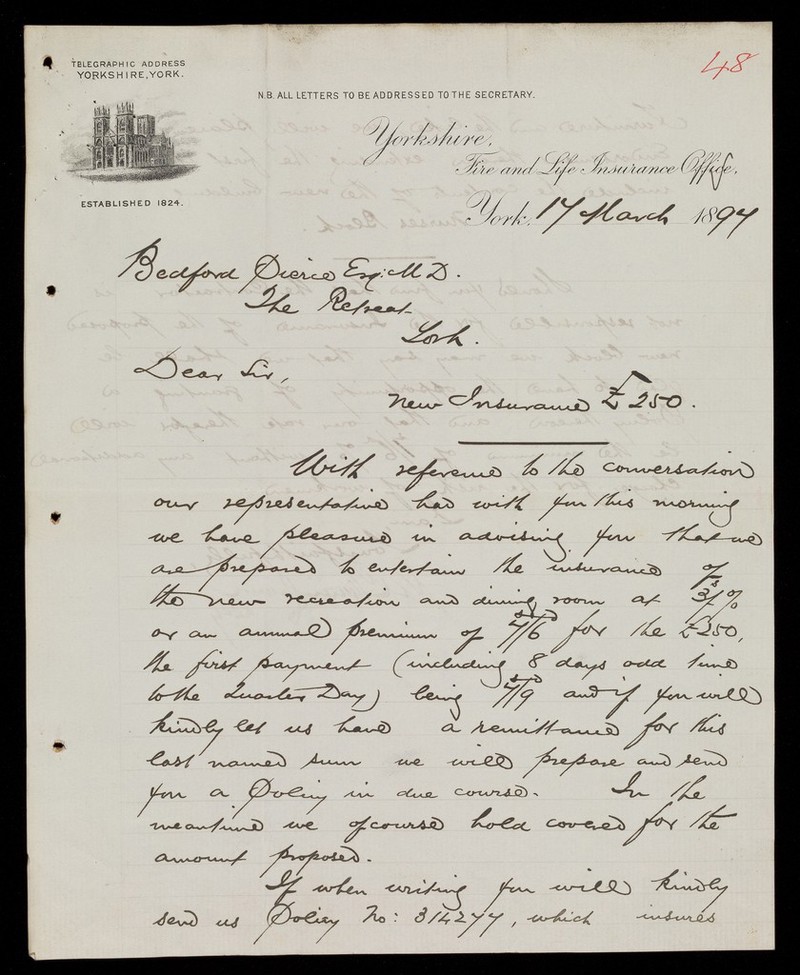 TELEGRAPHIC ADDRESS
YORKSHIRE, YORK.
48
N.B. ALL LETTERS TO BE ADDRESSED TO THE SECRETARY.
Yorkshire,
Fire and Life Insurance Office,
ESTABLISHED 1824.
York, 17 March 1897
Bedford Pierce Esq: M.D.
The Retreat
York.
Dear Sir,
New Insurance £250.
With reference to the conversation
our representative had with you this morning
we have pleasure in advising you that we
are prepared to entertain the insurance of
the new recreation and dining room at
or an annual premium of 4/6 for the £250,
the first payment (including 8 days odd time
to the Quarter Day) being 4/9 and if you will
kindly let us have a remittance for this
last named sum we will prepare and send
you a Policy in due course. In the
meantime we of course hold covered for the
amount proposed.
If when writing you will kindly
send us Policy No: 314277, which insures